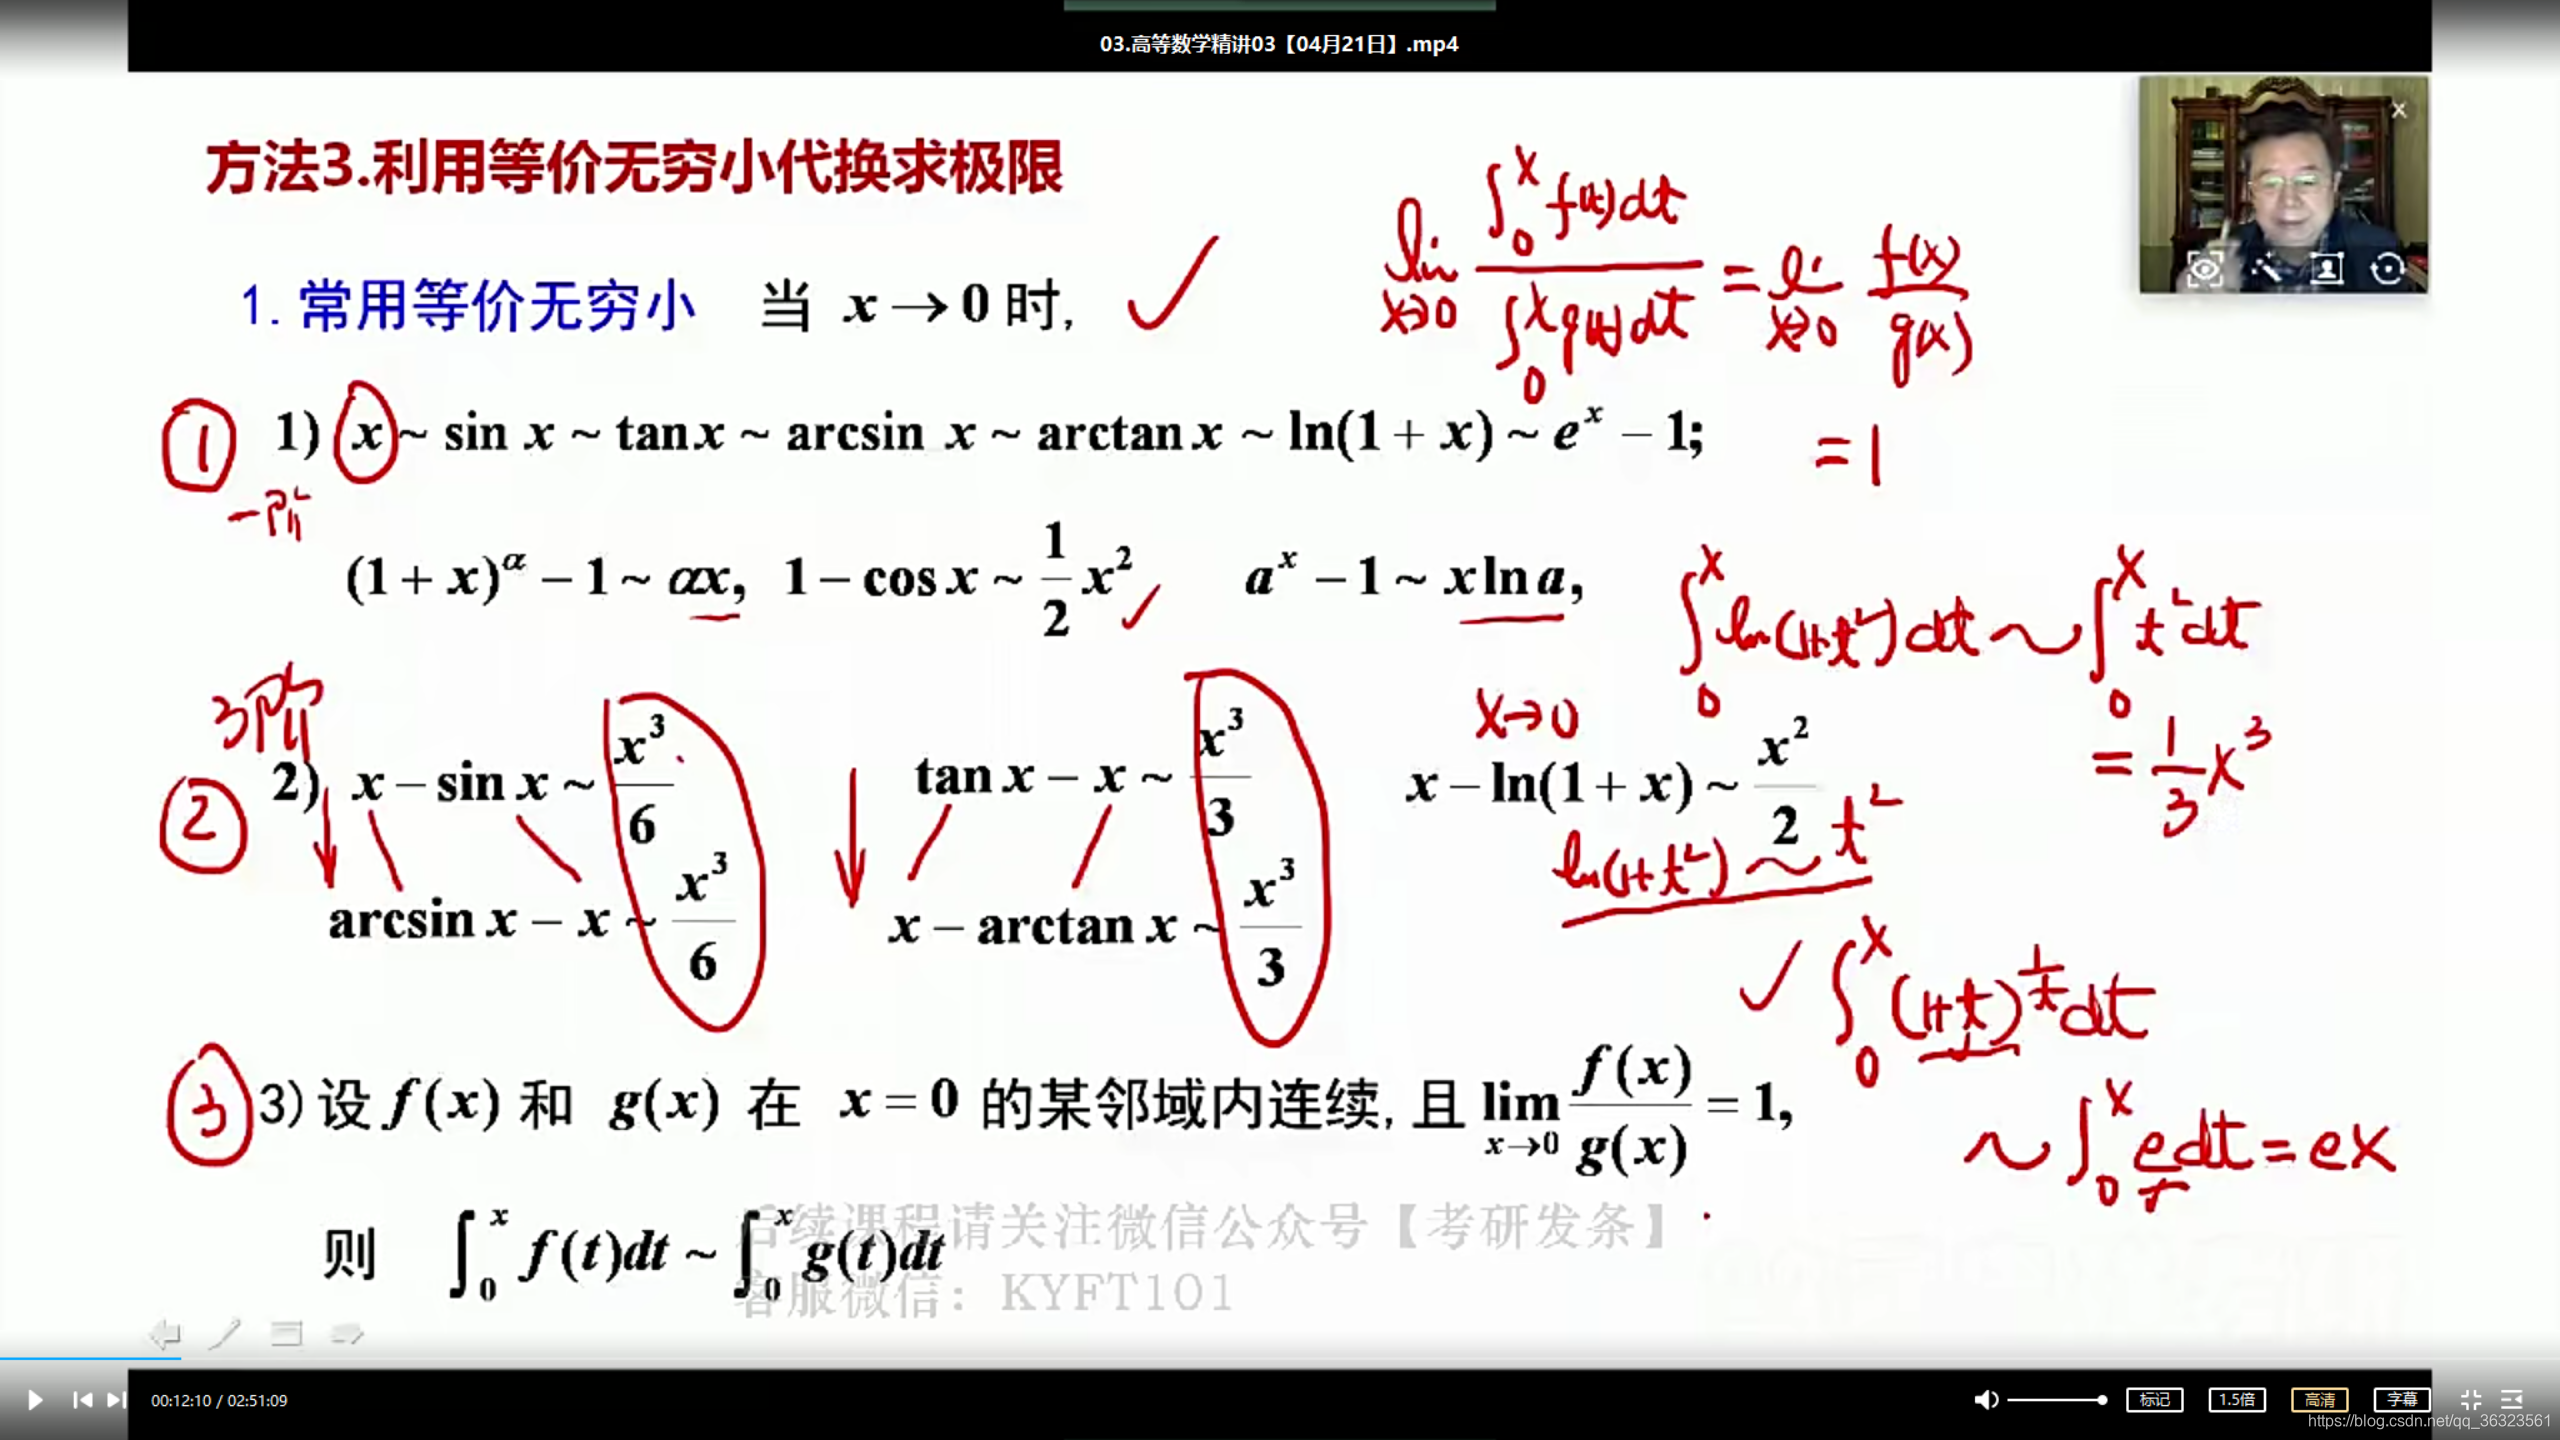 03.高等数学精讲03【04月21日】.mp4
方法3.利用等价无穷小代换求极限
lim x→0 ∫₀ˣ f(t)dt / ∫₀ˣ g(t)dt = lim x→0 f(x)/g(x)
1.常用等价无穷小 当 x→0 时, ✓
① 1) x ~ sin x ~ tan x ~ arcsin x ~ arctan x ~ ln(1 + x) ~ eˣ − 1; = 1
一阶
(1 + x)^α − 1 ~ αx, 1 − cos x ~ 1/2 x² ✓ aˣ − 1 ~ x ln a,
∫₀ˣ ln(1+t²)dt ~ ∫₀ˣ t²dt
= 1/3 x³
3阶
x→0
② 2) x − sin x ~ x³/6 tan x − x ~ x³/3 x − ln(1 + x) ~ x²/2
ln(1+t²) ~ t²
arcsin x − x ~ x³/6 x − arctan x ~ x³/3
✓ ∫₀ˣ (1+t)^(1/t) dt
~ ∫₀ˣ e dt = ex
③ 3) 设 f(x) 和 g(x) 在 x = 0 的某邻域内连续, 且 lim x→0 f(x)/g(x) = 1,
则 ∫₀ˣ f(t)dt ~ ∫₀ˣ g(t)dt
后续课程请关注微信公众号【考研发条】
客服微信：KYFT101
00:12:10 / 02:51:09
标记 1.5倍 高清 字幕
https://blog.csdn.net/qq_36323561